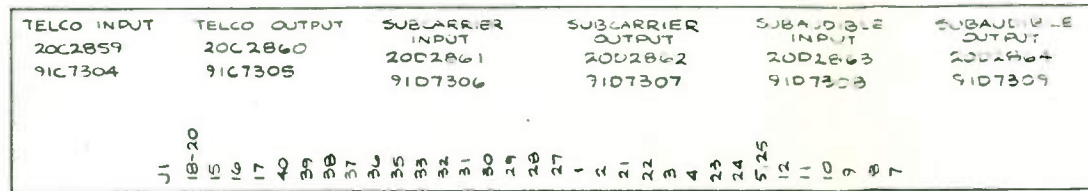 TELCO INPUT
20C2859
91C7304
TELCO OUTPUT
20C2860
91C7305
SUBCARRIER
INPUT
20D2861
91D7306
SUBCARRIER
OUTPUT
20D2862
91D7307
SUBAUDIBLE
INPUT
20D2863
91D7308
SUBAUDIBLE
OUTPUT
20D2864
91D7309
J1
18-20
15
16
17
40
39
38
37
36
35
33
32
31
30
29
28
27
1
2
21
22
3
4
23
24
5,25
12
11
10
9
8
7